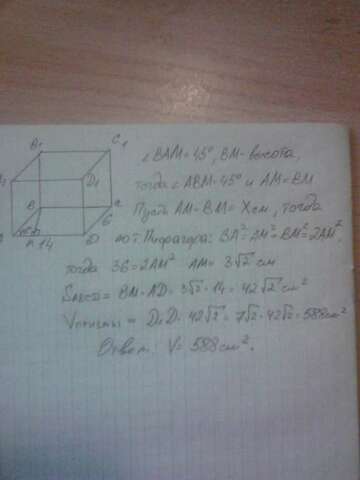 B₁ C₁
D₁
B C
6
M 14 D
∠BAM=45°, BM-высота,
тогда ∠ABM=45° и AM=BM
Пусть AM=BM=Xсм, тогда
по т. Пифагора: BA²=AM²+BM²=2AM²,
тогда 36=2AM² AM=3√2 см
S = BM·AD=3√2·14=42√2 см²
Vпризмы = D₁D·42√2=7√2·42√2=588см²
Ответ: V=588см².